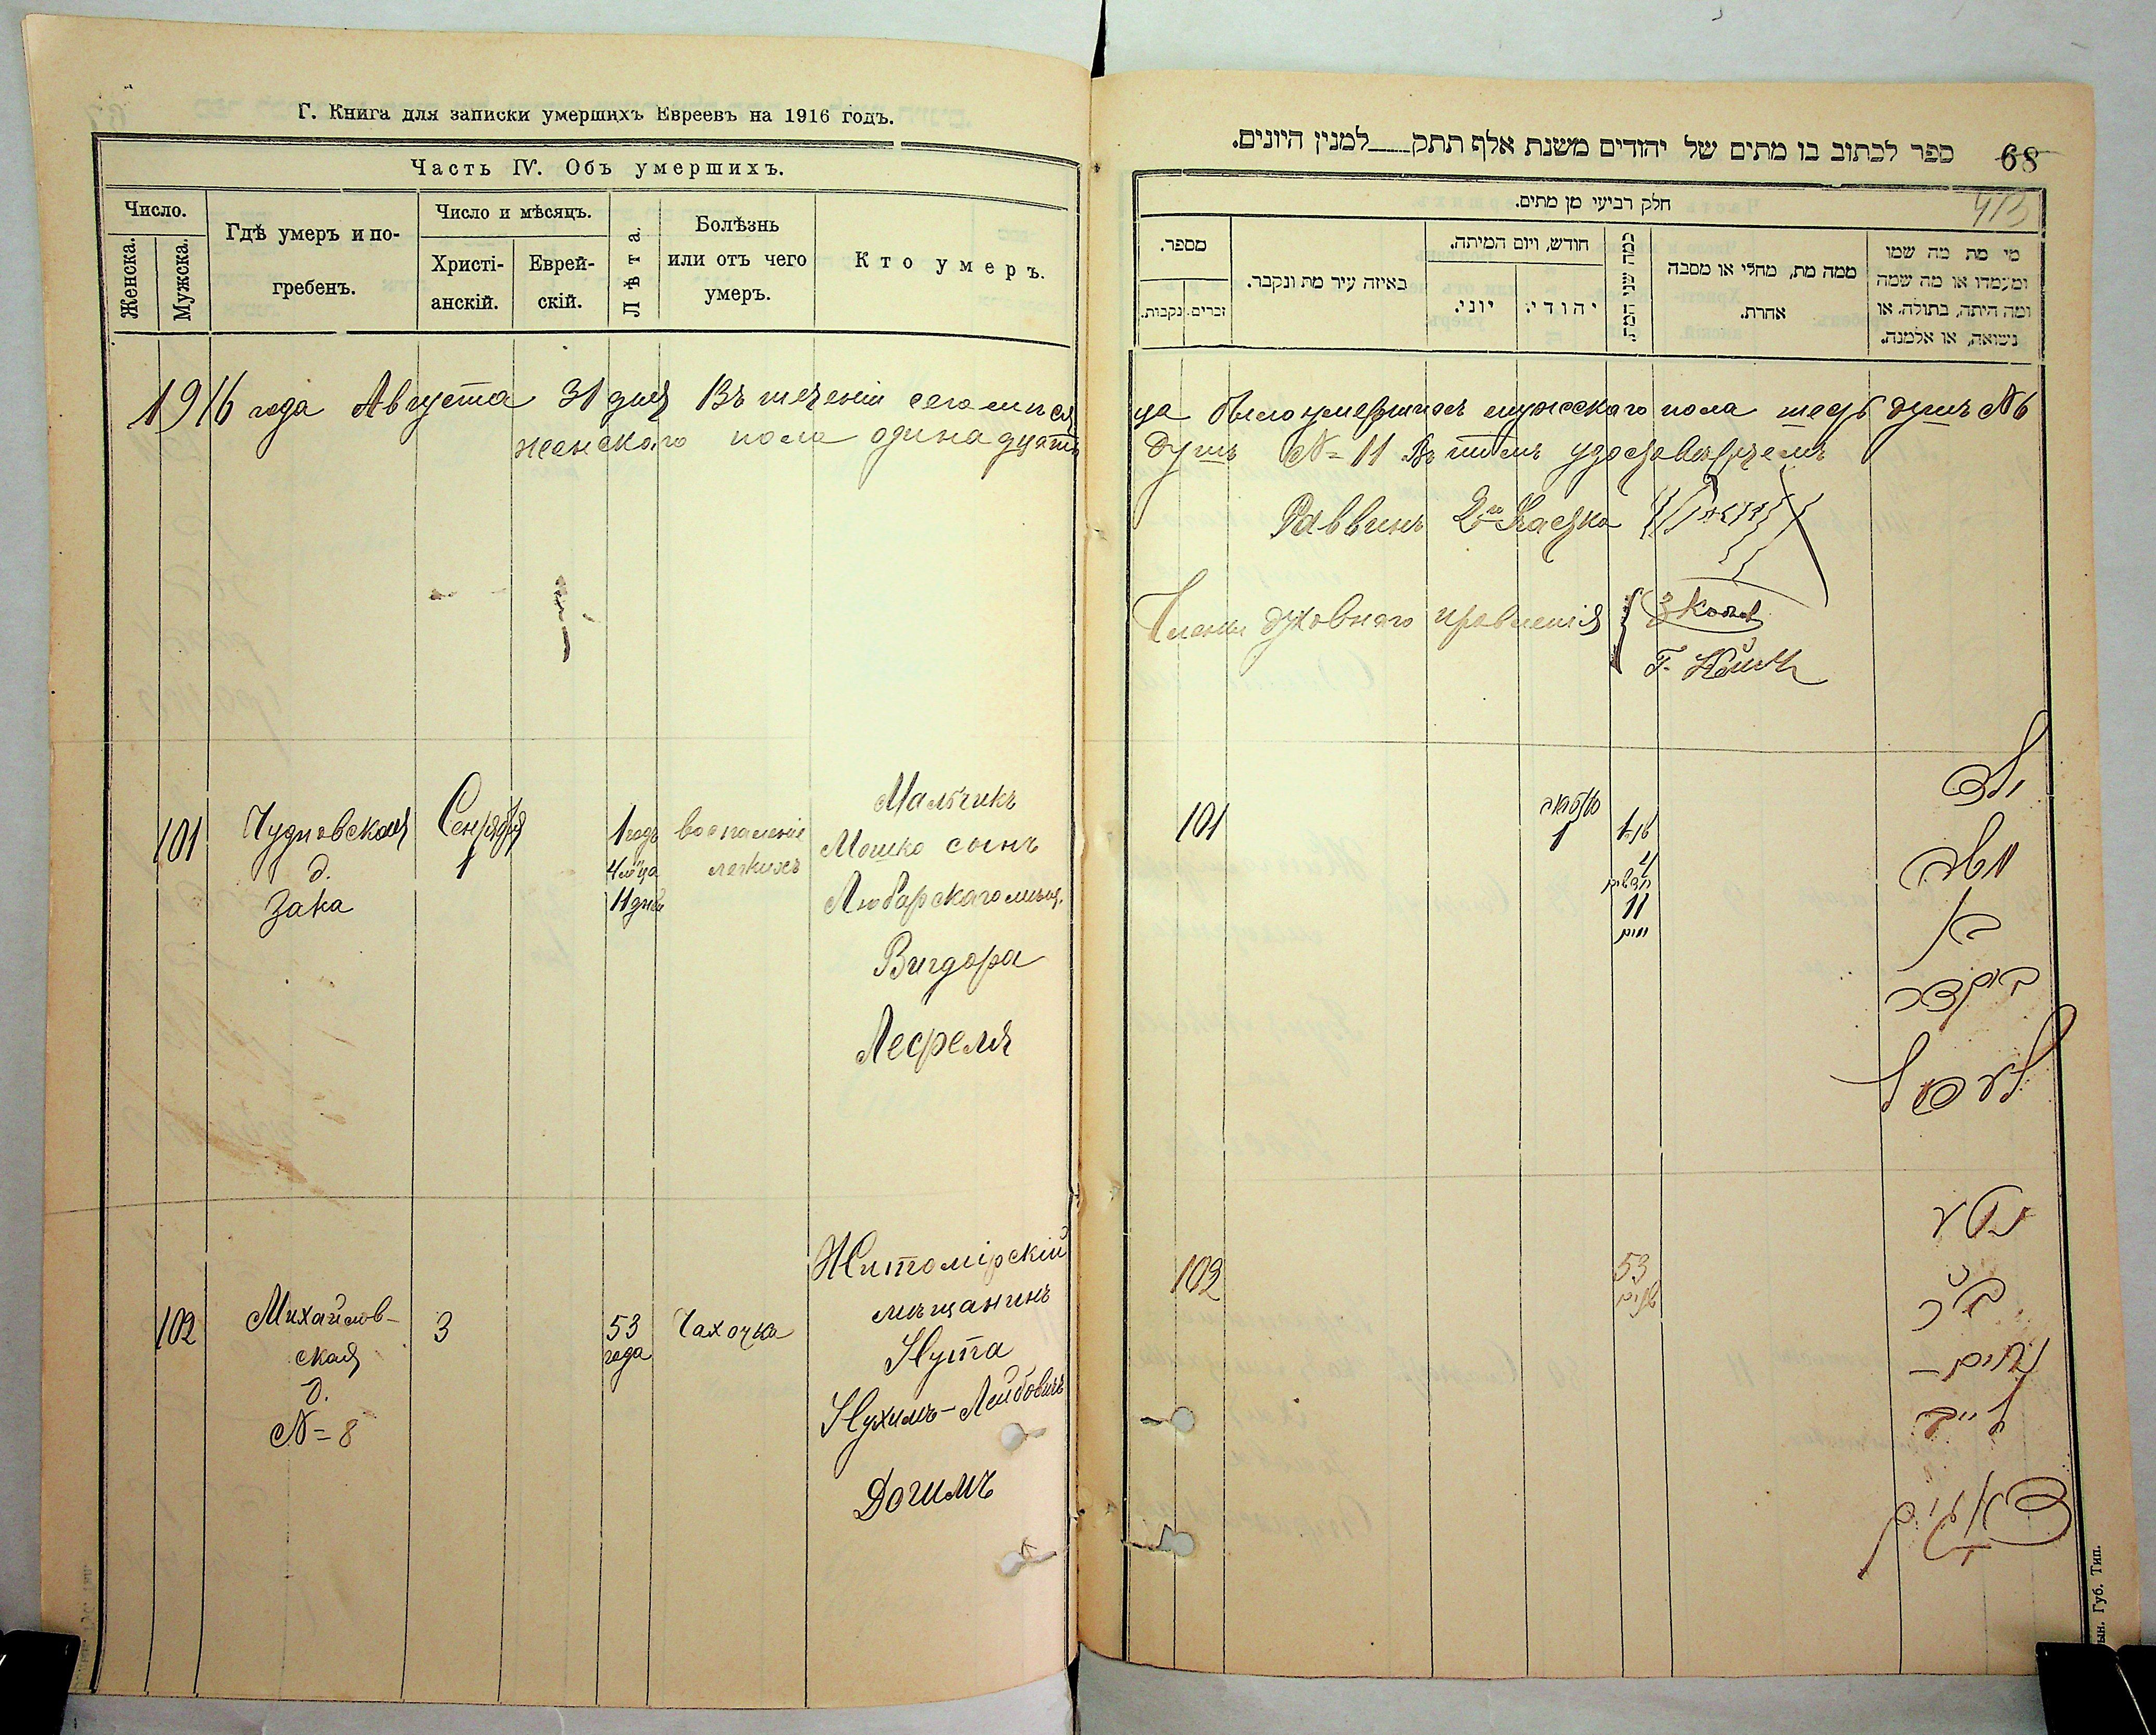 Г. Книга для записки умершихъ Евреевъ на 1916 годъ.
Часть IV. Объ умершихъ.
Число.
Женска.
Мужска.
Гдѣ умеръ и по-
гребенъ.
Число и мѣсяцъ.
Христі-
анскій.
Еврей-
скій.
Лѣта.
Болѣзнь
или отъ чего
умеръ.
Кто умеръ.
1916 года Августа 31 дня Въ теченіи сего мѣся
женского пола одинадцать
101
Чудновская
д.
Зака
Сентября
1
1 годъ
4 м-ца
11 дней
воспаленіе
легкихъ
Мальчикъ
Мошко сынъ
Любарского мѣщ.
Вигдора
102
Михайлов-
ская
д.
№ 8
3
53
года
Чахотка
Житомірскій
мѣщанинъ
Нута
Нухимъ-Лейбовичъ
Догимъ
ספר לכתוב בו מתים של יהודים משנת אלף תתק___למנין היונים.
68
חלק רביעי מן מתים.
מספר.
זכרים.
נקבות.
באיזה עיר מת ונקבר.
חודש, ויום המיתה.
יוני.
יהודי:
כמה שני המת.
ממה מת, מחלי או מסבה
אחרת.
מי מת מה שמו
ומעמדו או מה שמה
ומה היתה, בתולה, או
נשואה, או אלמנה.
ца было умершихъ мужского пола шесть душъ № 6
душъ № 11 Въ томъ удостовѣряемъ
Раввинъ
Члены духовного правленія
101
1
1
4
חדשים
11
ימים
ילד
משה
בן
102
53
שנים
נטע
בר
נחום –
לייב
Губ. Тип.